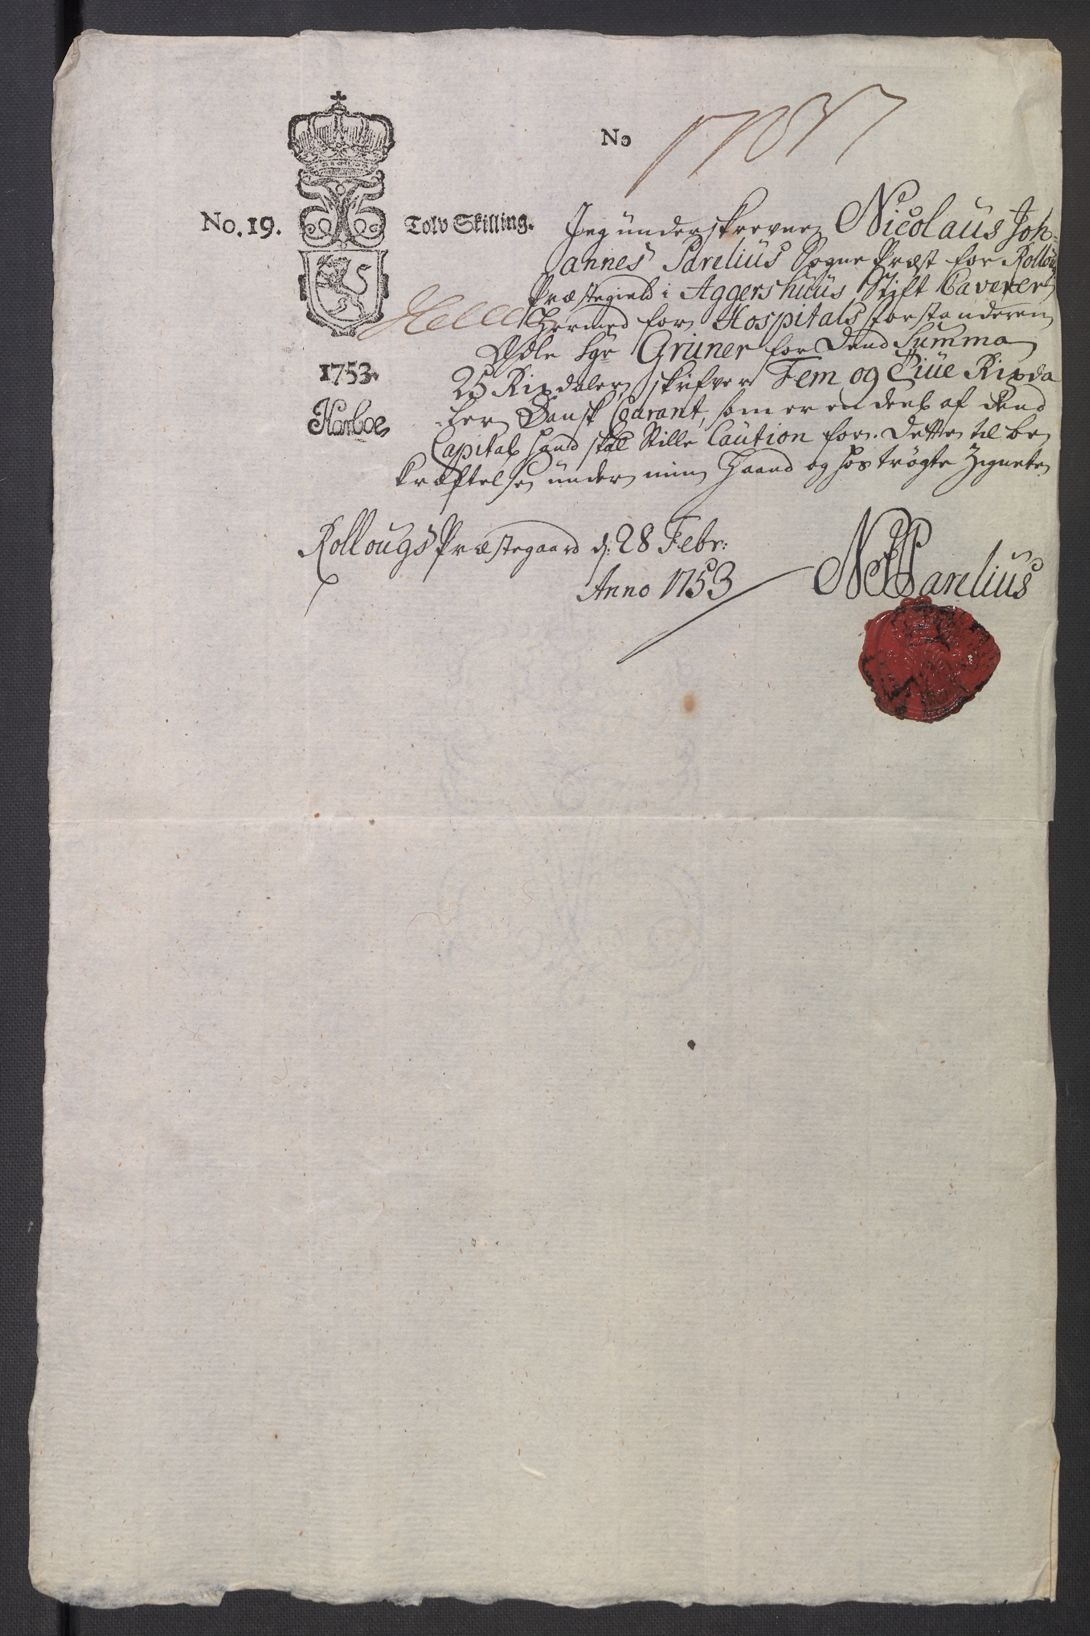 No 17057
No. 19. Tolv Skilling.
1753.
Harboe
Jeg underskrevne Nicolaus Joh-
annes Parelius Sogne Præst for Rollou
Præstegield i Aggershuus Stift Caverer
Hermed for Hospitals forstanderen
Æsle Sgr Grüner for Dend Summa
25 Rixdaler skrifver Fem og Tiue Rixda
ler Dansk Courant, som er en deel af dend
Capital hand skal Stille Caution for. Dette til be
kræftelse under min Haand og hos trögte Zignete
Rollougs Præstegaard d: 28 Febr:
Anno 1753
NJParelius